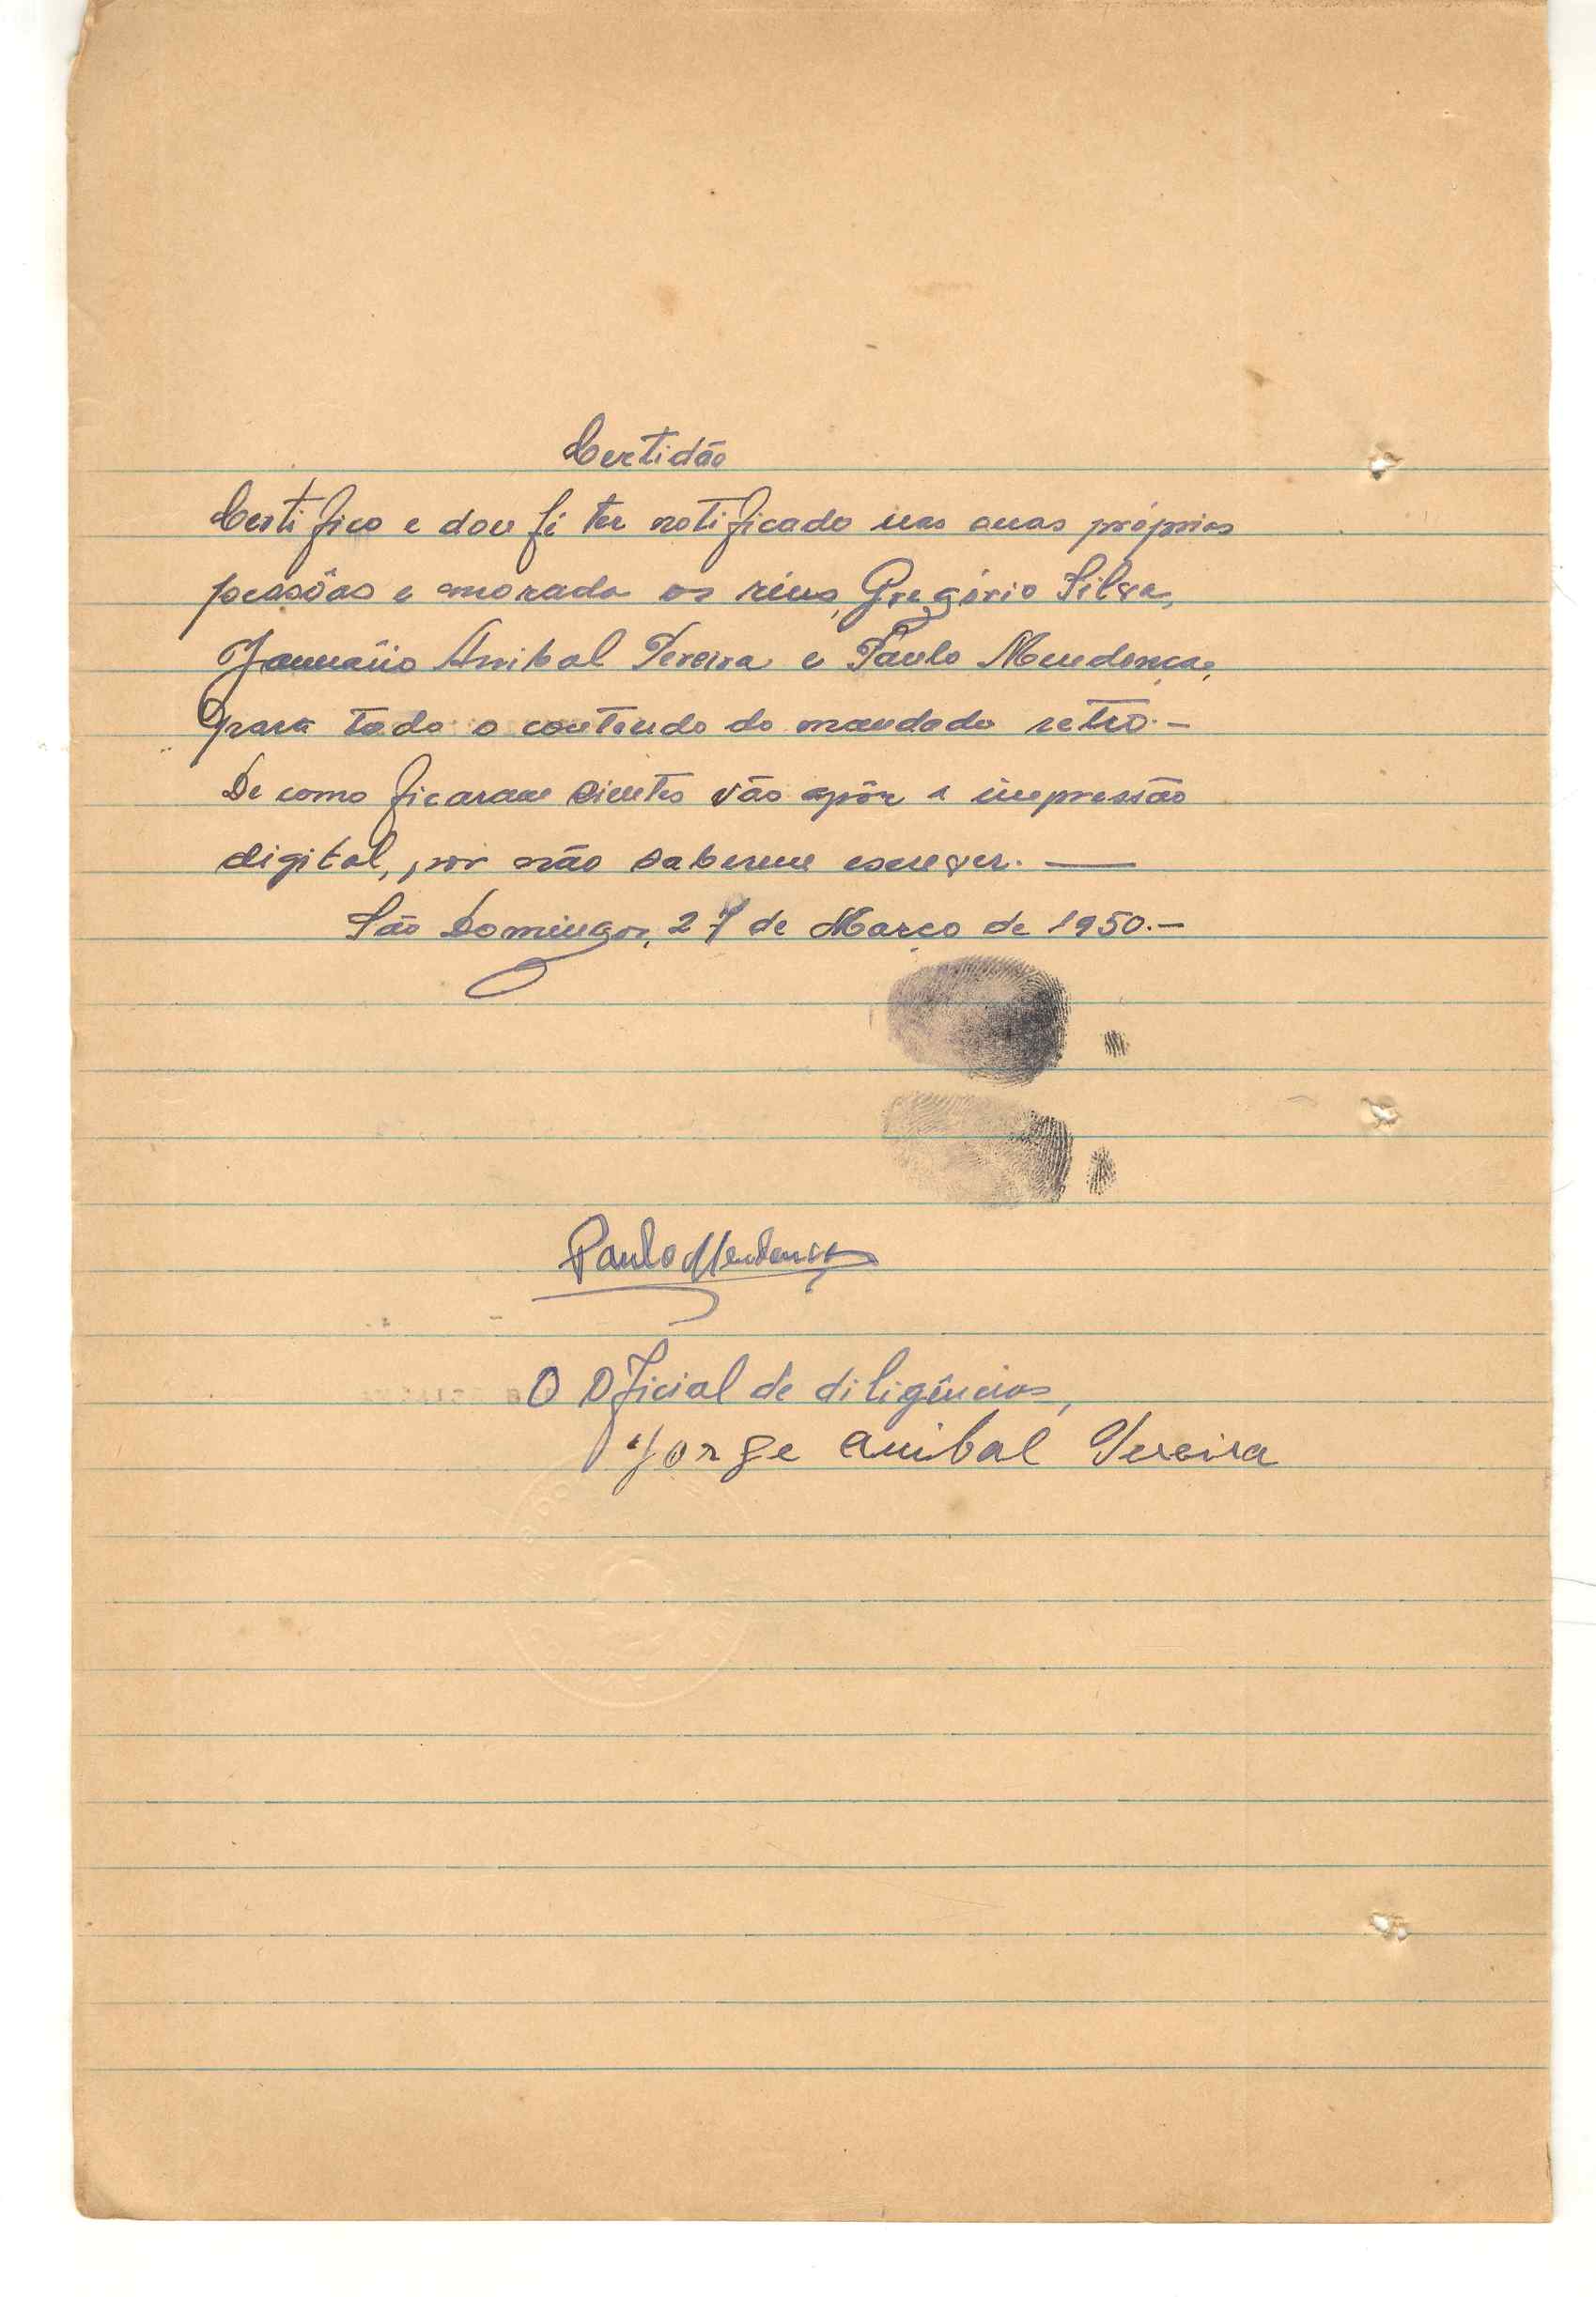 Certidão
Certifico e dou fé ter notificado nas suas próprias
pessôas e morada os réus, Gregório Silva,
Januário Anibal Pereira e Paulo Mendonça,
para todo o conteudo do mandado retro.—
De como ficaram cientes vão apôr a impressão
digital, por não saberem escrever. —
São Domingos, 27 de Março de 1950.—
Paulo Mendonça
O Oficial de diligências,
Jorge Anibal Pereira